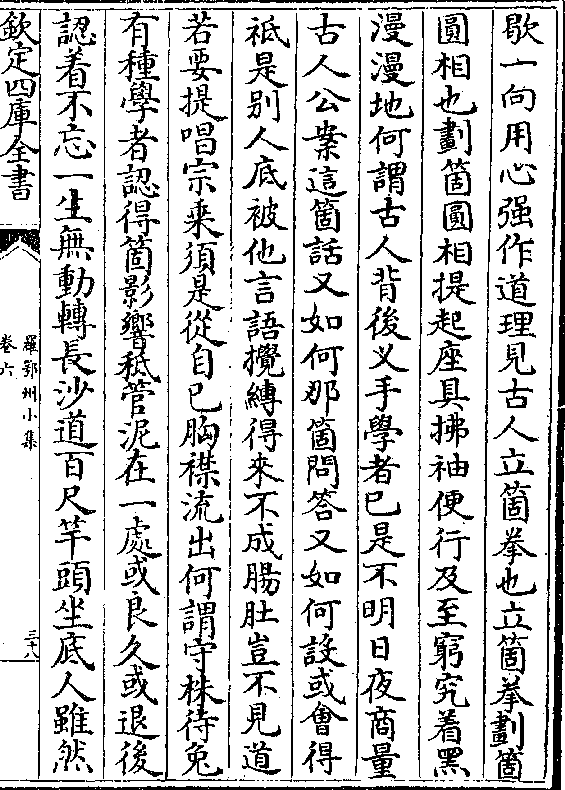 歇一向用心强作道理見古人立箇拳也立箇拳劃箇
圓相也劃箇圓相提起座具拂袖便行及至窮究着黑
漫漫地何謂古人背後义手學者已是不明日夜商量
古人公案這箇話又如何那箇問答又如何設或會得
祗是别人底被他言語攪縛得來不成腸肚豈不見道
若要提唱宗乗須是從自已胸襟流出何謂守株待兔
有種學者認得箇影響秪管泥在一處或良久或退後
認着不忘一生無動轉長沙道百尺竿頭坐底人雖然
欽定四庫全書
羅鄂州小集
卷六
三十八